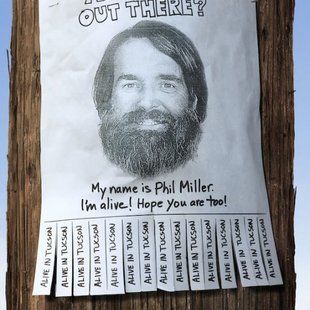 OUT THERE?
My name is Phil Miller.
I'm alive! Hope you are too!
ALIVE IN TUCSON
ALIVE IN TUCSON
ALIVE IN TUCSON
ALIVE IN TUCSON
ALIVE IN TUCSON
ALIVE IN TUCSON
ALIVE IN TUCSON
ALIVE IN TUCSON
ALIVE IN TUCSON
ALIVE IN TUCSON
ALIVE IN TUCSON
ALIVE IN TUCSON
ALIVE IN TUCSON
ALIVE IN TUCSON